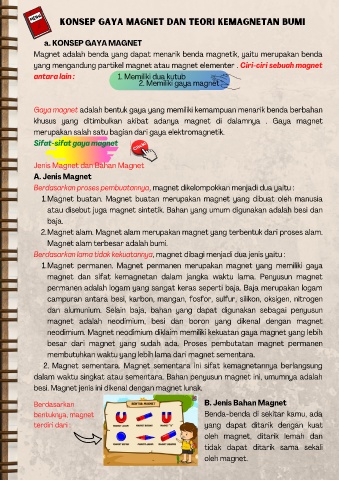 KONSEP GAYA MAGNET DAN TEORI KEMAGNETAN BUMI
a. KONSEP GAYA MAGNET
Magnet adalah benda yang dapat menarik benda magnetik, yaitu merupakan benda
yang mengandung partikel magnet atau magnet elementer . Ciri-ciri sebuah magnet
antara lain :
1. Memiliki dua kutub
2. Memiliki gaya magnet
Gaya magnet adalah bentuk gaya yang memiliki kemampuan menarik benda berbahan
khusus yang ditimbulkan akibat adanya magnet di dalamnya . Gaya magnet
merupakan salah satu bagian dari gaya elektromagnetik.
Sifat-sifat gaya magnet
Jenis Magnet dan Bahan Magnet
A. Jenis Magnet
Berdasarkan proses pembuatannya, magnet dikelompokkan menjadi dua yaitu :
1. Magnet buatan. Magnet buatan merupakan magnet yang dibuat oleh manusia
atau disebut juga magnet sintetik. Bahan yang umum digunakan adalah besi dan
baja.
2. Magnet alam. Magnet alam merupakan magnet yang terbentuk dari proses alam.
Magnet alam terbesar adalah bumi.
Berdasarkan lama tidak kekuatannya, magnet dibagi menjadi dua jenis yaitu :
1. Magnet permanen. Magnet permanen merupakan magnet yang memiliki gaya
magnet dan sifat kemagnetan dalam jangka waktu lama. Penyusun magnet
permanen adalah logam yang sangat keras seperti baja. Baja merupakan logam
campuran antara besi, karbon, mangan, fosfor, sulfur, silikon, oksigen, nitrogen
dan alumunium. Selain baja, bahan yang dapat digunakan sebagai penyusun
magnet adalah neodimium, besi dan boron yang dikenal dengan magnet
neodimium. Magnet neodimium diklaim memiliki kekuatan gaya magnet yang lebih
besar dari magnet yang sudah ada. Proses pembuatan magnet permanen
membutuhkan waktu yang lebih lama dari magnet sementara.
2. Magnet sementara. Magnet sementara ini sifat kemagnetannya berlangsung
dalam waktu singkat atau sementara. Bahan penyusun magnet ini, umumnya adalah
besi. Magnet jenis ini dikenal dengan magnet lunak.
Berdasarkan
bentuknya, magnet
terdiri dari :
BENTUK MAGNET
B. Jenis Bahan Magnet
Benda-benda di sekitar kamu, ada
yang dapat ditarik dengan kuat
oleh magnet, ditarik lemah dan
tidak dapat ditarik sama sekali
oleh magnet.